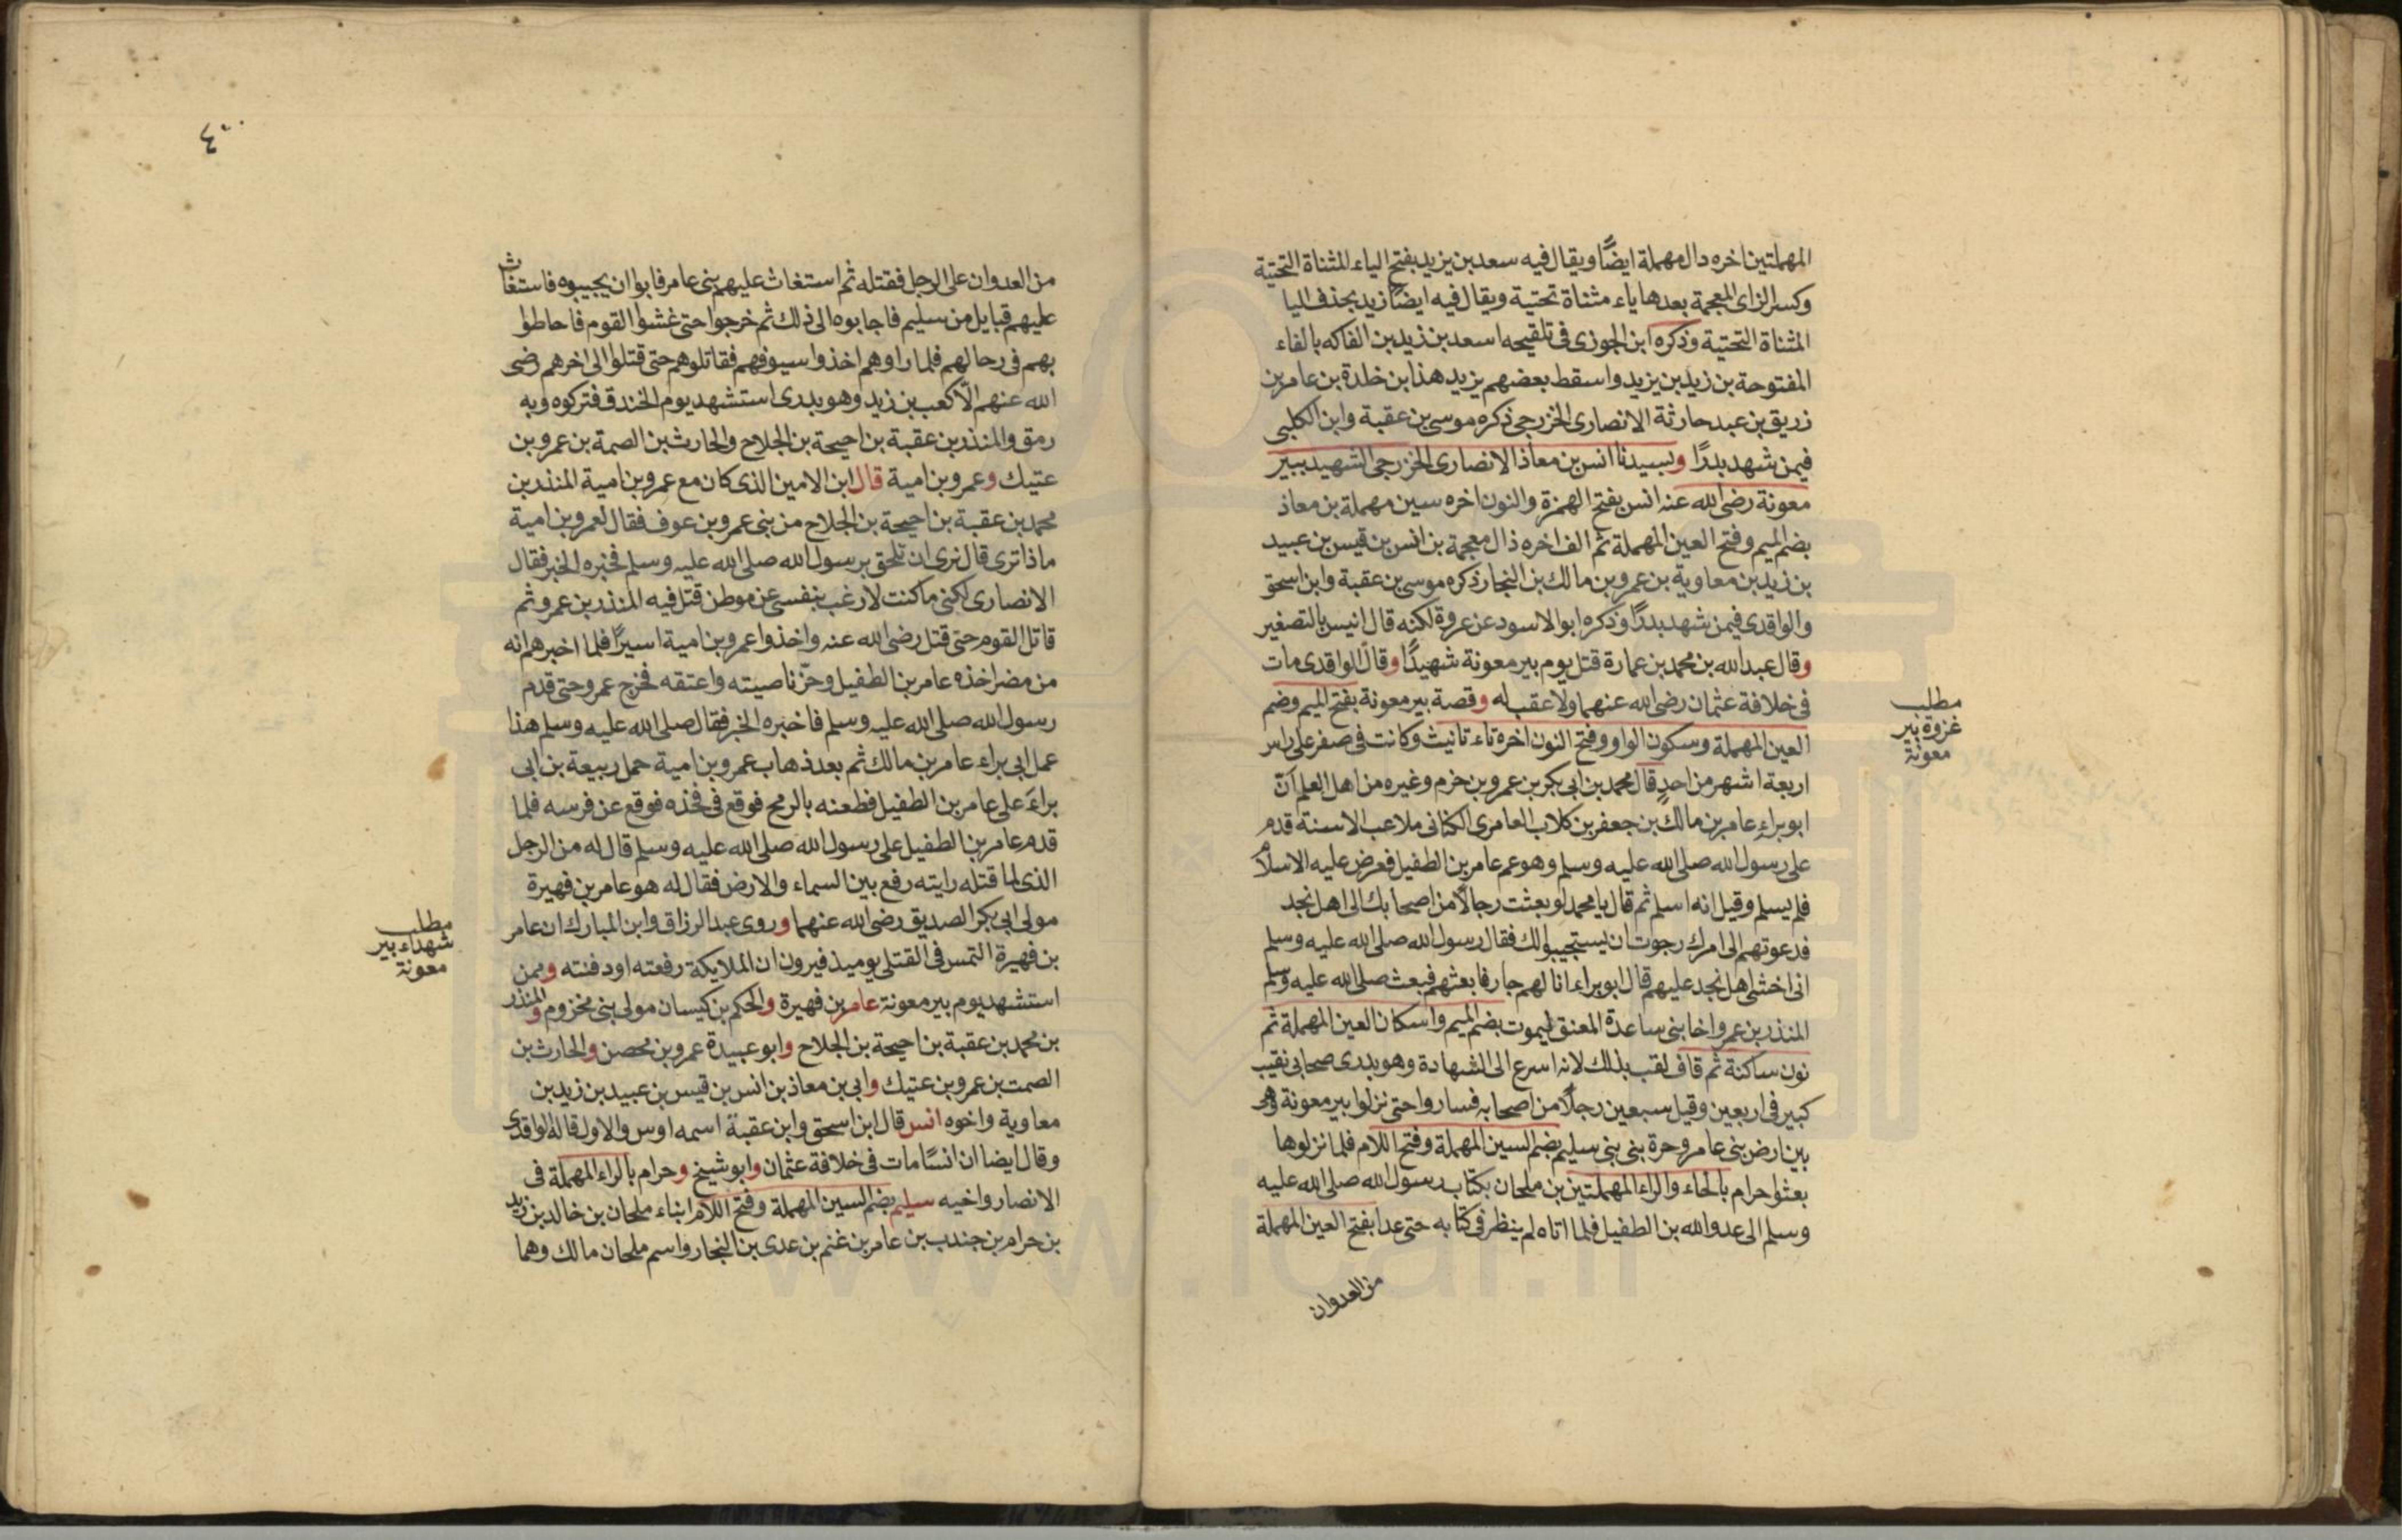 المهملتين اخره دال مهملة ايضًا ويقال فيه سعد بن يزيد بفتح الياء المثناة التحتية
وكسر الزاى المعجمة بعدها ياء مثناة تحتية ويقال فيه ايضًا زيد بحذف اليا
المثناة التحتية وذكره ابن الجوزى فى تلقيحه اسعد بن زيد بن الفاكه بالفاء
المفتوحة بن زيد بن يزيد واسقط بعضهم يزيد هذا بن خلدة بن عامر بن
زريق بن عبد حارثة الانصارى الخزرجى ذكره موسى بن عقبة وابن الكلبى
فيمن شهد بدرًا وبسيدنا انس بن معاذ الانصارى الخزرجى الشهيد ببير
معونة رضى الله عنه انس بفتح الهمزة والنون اخره سين مهملة بن معاذ
بضم الميم وفتح العين المهملة ثم الف اخره ذال معجمة بن انس بن قيس بن عبيد
بن زيد بن معاوية بن عمرو بن مالك بن النجار ذكره موسى بن عقبة وابن اسحق
والواقدى فيمن شهد بدرًا وذكره ابو الاسود عن عروة لكنه قال انيس بالتصغير
وقال عبد الله بن محمد بن عمارة قتل يوم بير معونة شهيدًا وقال الواقدى مات
فى خلافة عثمان رضى الله عنهما ولا عقب له وقصة بير معونة بفتح الميم وضم
العين المهملة وسكون الواو وفتح النون اخره تاء تانيث وكانت فى صفر على راس
اربعة اشهر من احد قال محمد بن ابى بكر بن عمرو بن حزم وغيره من اهل العلم ان
ابو براء عامر بن مالك بن جعفر بن كلاب العامرى الكنانى ملاعب الاسنة قدم
على رسول الله صلى الله عليه وسلم وهو عم عامر بن الطفيل فعرض عليه الاسلام
فلم يسلم وقيل انه اسلم ثم قال يا محمد لو بعثت رجالًا من اصحابك الى اهل نجد
فدعوتهم الى امرك رجوت ان يستجيبوا لك فقال رسول الله صلى الله عليه وسلم
انى اخشى اهل نجد عليهم قال ابو براء انا لهم جار فابعثهم فبعث صلى الله عليه وسلم
المنذر بن عمرو اخا بنى ساعدة المعنق ليموت بضم الميم واسكان العين المهملة ثم
نون ساكنة ثم قاف لقب بذلك لانه اسرع الى الشهادة وهو بدرى صحابى نقيب
كبير فى اربعين وقيل سبعين رجلًا من اصحابه فساروا حتى نزلوا بير معونة وهو
بين ارض بنى عامر وحرة بنى بنى سليم بضم السين المهملة وفتح اللام فلما نزلوها
بعثوا حرام بالحاء والراء المهملتين بن ملحان بكتاب رسول الله صلى الله عليه
وسلم الى عدو الله بن الطفيل فلما اتاه لم ينظر فى كتابه حتى عدا بفتح العين المهملة
من العدوان
مطلب
غزوة بير
معونة
٤٠
من العدوان على الرجل فقتله ثم استغاث عليهم بنى عامر فابوا ان يجيبوه فاستغاث
عليهم قبايل من سليم فاجابوه الى ذلك ثم خرجوا حتى غشوا القوم فاحاطوا
بهم فى رحالهم فلما راوهم اخذوا سيوفهم فقاتلوهم حتى قتلوا الى اخرهم رضى
الله عنهم الّا كعب بن زيد وهو بدرى استشهد يوم الخندق فتركوه وبه
رمق والمنذر بن عقبة بن احيحة بن الجلاح والحارث بن الصمة بن عمرو بن
عتيك وعمرو بن امية قال ابن الامين الذى كان مع عمرو بن امية المنذر بن
محمد بن عقبة بن احيحة بن الجلاح من بنى عمرو بن عوف فقال لعمرو بن امية
ماذا ترى قال نرى ان نلحق برسول الله صلى الله عليه وسلم فنخبره الخبر فقال
الانصارى لكنى ما كنت لارغب بنفسى عن موطن قتل فيه المنذر بن عمرو ثم
قاتل القوم حتى قتل رضى الله عنه واخذوا عمرو بن امية اسيرًا فلما اخبرهم انه
من مضر اخذه عامر بن الطفيل وجزّ ناصيته واعتقه فخرج عمرو حتى قدم
رسول الله صلى الله عليه وسلم فاخبره الخبر فقال صلى الله عليه وسلم هذا
عمل ابى براء عامر بن مالك ثم بعد ذهاب عمرو بن امية حمل ربيعة بن ابى
براء على عامر بن الطفيل فطعنه بالرمح فوقع فى فخذه فوقع عن فرسه فلما
قدم عامر بن الطفيل على رسول الله صلى الله عليه وسلم قال له من الرجل
الذى لما قتله رايته رفع بين السماء والارض فقال له هو عامر بن فهيرة
مولى ابى بكر الصديق رضى الله عنهما وروى عبد الرزاق وابن المبارك ان عامر
بن فهيرة التمس فى القتلى يوميذ فيرون ان الملايكة رفعته او دفنته وممن
استشهد يوم بير معونة عامر بن فهيرة والحكم بن كيسان مولى بنى مخزوم والمنذر
بن محمد بن عقبة بن احيحة بن الجلاح وابو عبيدة عمرو بن محصن والحارث بن
الصمت بن عمرو بن عتيك وابى بن معاذ بن انس بن قيس بن عبيد بن زيد بن
معاوية واخوه انس قال ابن اسحق وابن عقبة اسمه اوس والاول قاله الواقدى
وقال ايضا ان انسًا مات فى خلافة عثمان وابو شيخ وحرام بالراء المهملة فى
الانصار واخيه سليم بضم السين المهملة وفتح اللام ابناء ملحان بن خالد بن زيد
بن حرام بن جندب بن عامر بن غنم بن عدى بن النجار واسم ملحان مالك وهما
مطلب
شهداء بير
معونة
www.ical.ir